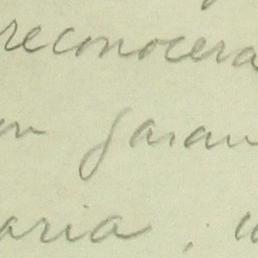 reconocera
on garan
aria, u